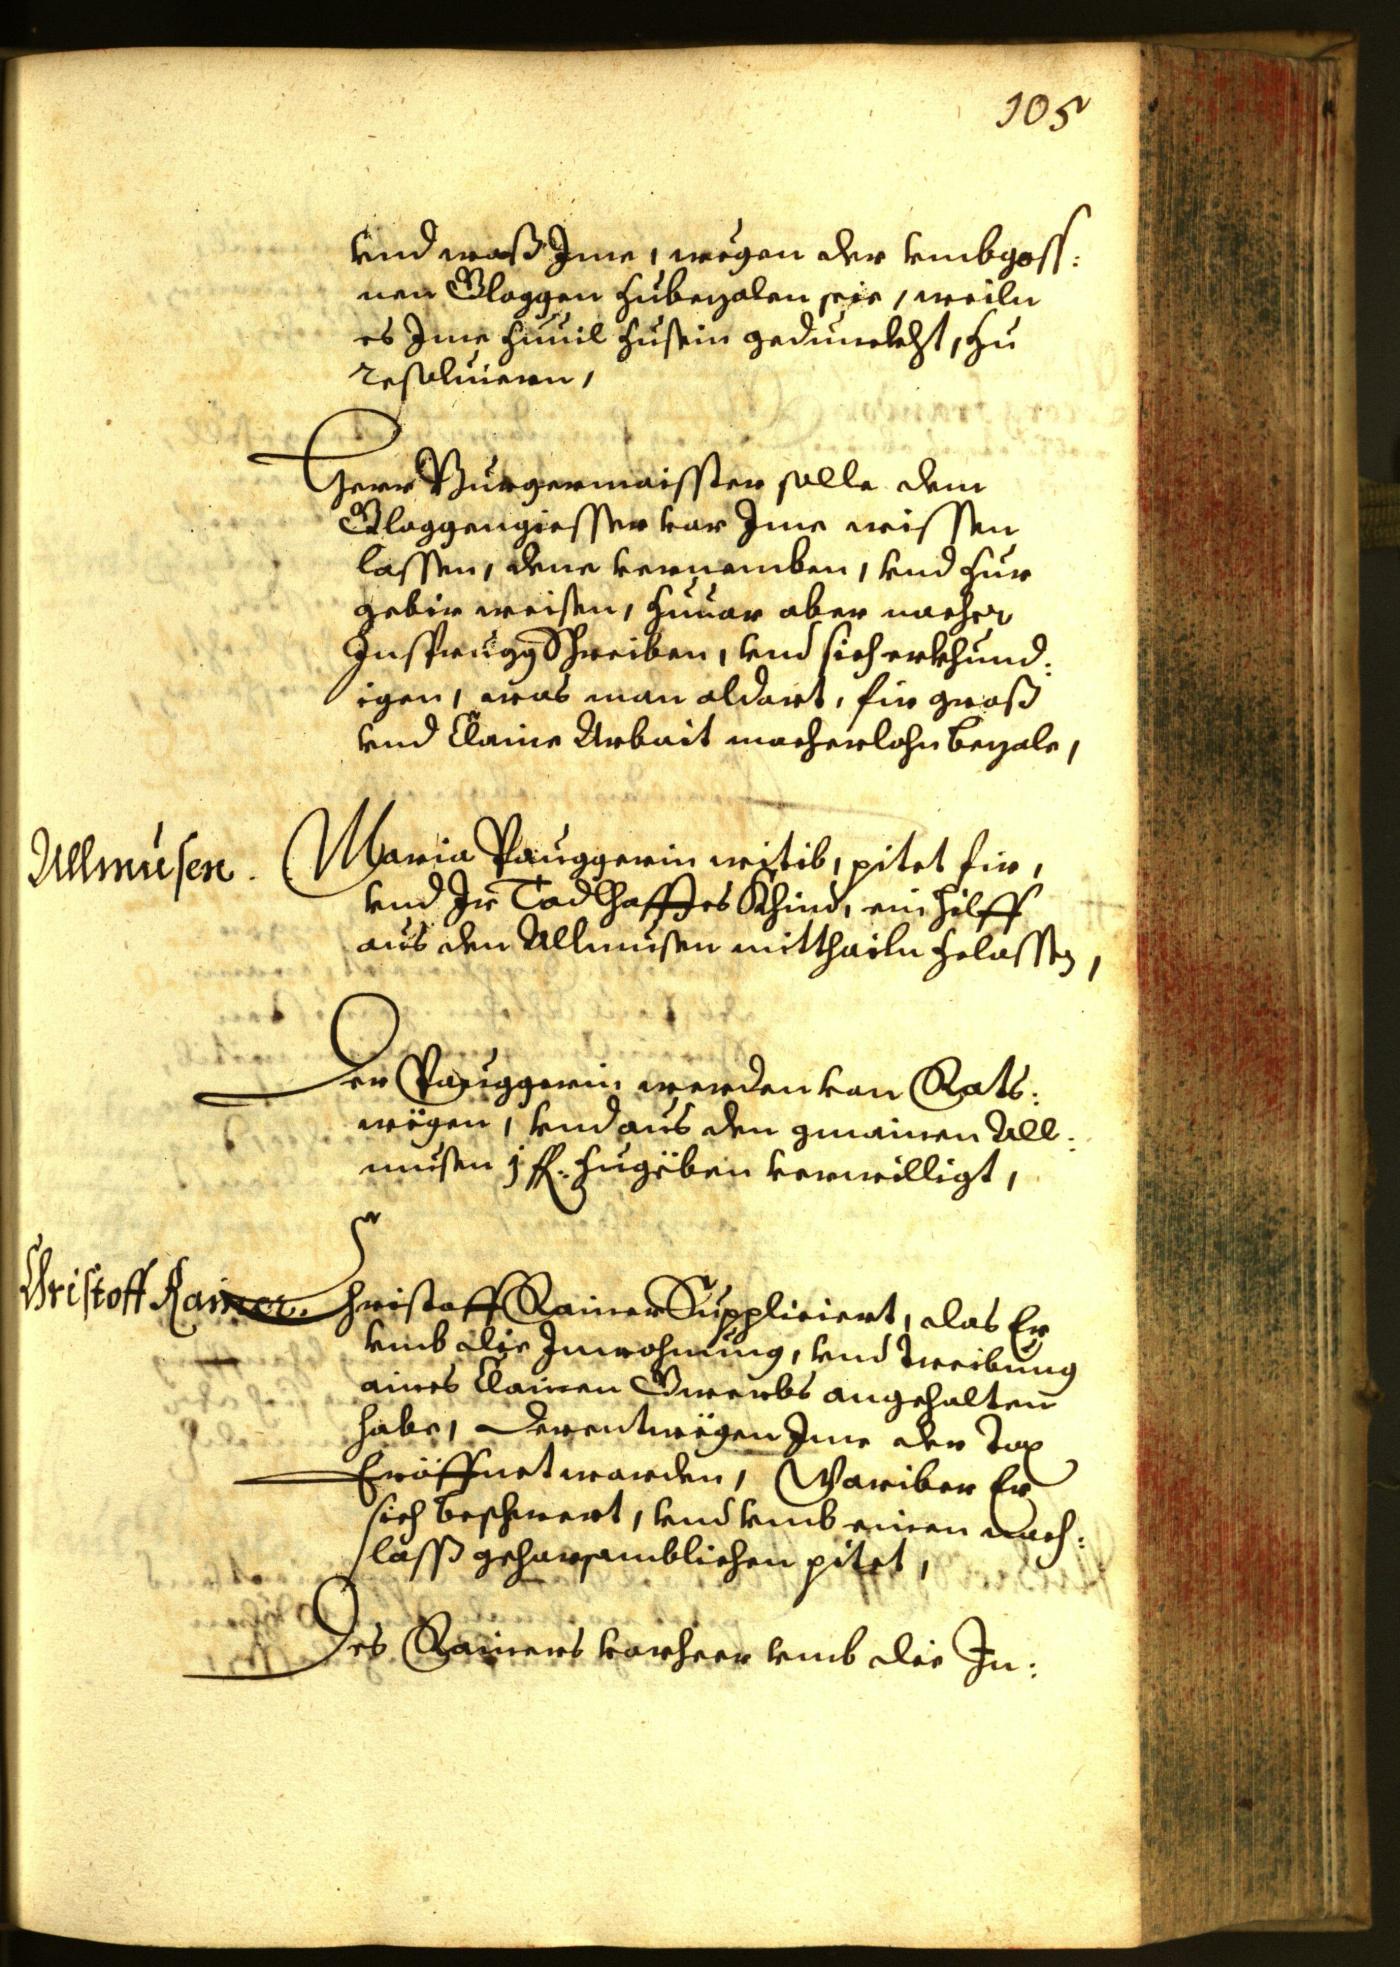 105
vnd waß Ime, wegen der vmbgoss:
nen Gloggen zubezalen seie, weiln
es Ime zuuil zusein gedunckht, zu
resoluiern,
Herr Burgermaisster solle dem
Gloggengiesser vor Ime wissen
lassen, dene vernemben, vnd zur
gebir weisen, zuuor aber nacher
Insprugg Schreiben, vnd sich erkhund:
igen, was man aldort, fir groß
vnd Claine Arbait macherlohn bezale,
Allmusen.
Maria Pauggerin witib, pitet fir,
vnd Ir Todthafftes Khind, ein hilff
aus den Allmusen mitthailn zelassen,
Der Pauggerin werden von Rats:
wëgen, vnd aus den gmainen All:
musen j fl. zugëben verwilligt,
Christoff Rainer.
Christoff Rainer Suppliciert, das Er
vmb die Inwohnung, vnd Treibung
aines Clainen Gwerbs angehalten
habe, Derentwëgen Ime der Tax
Eröffnet worden, Woriber Er
sich beschwert, vnd vmb einen nach:
lasß gehorsamblichen pitet,
Des Rainers vorheer vmb die In: